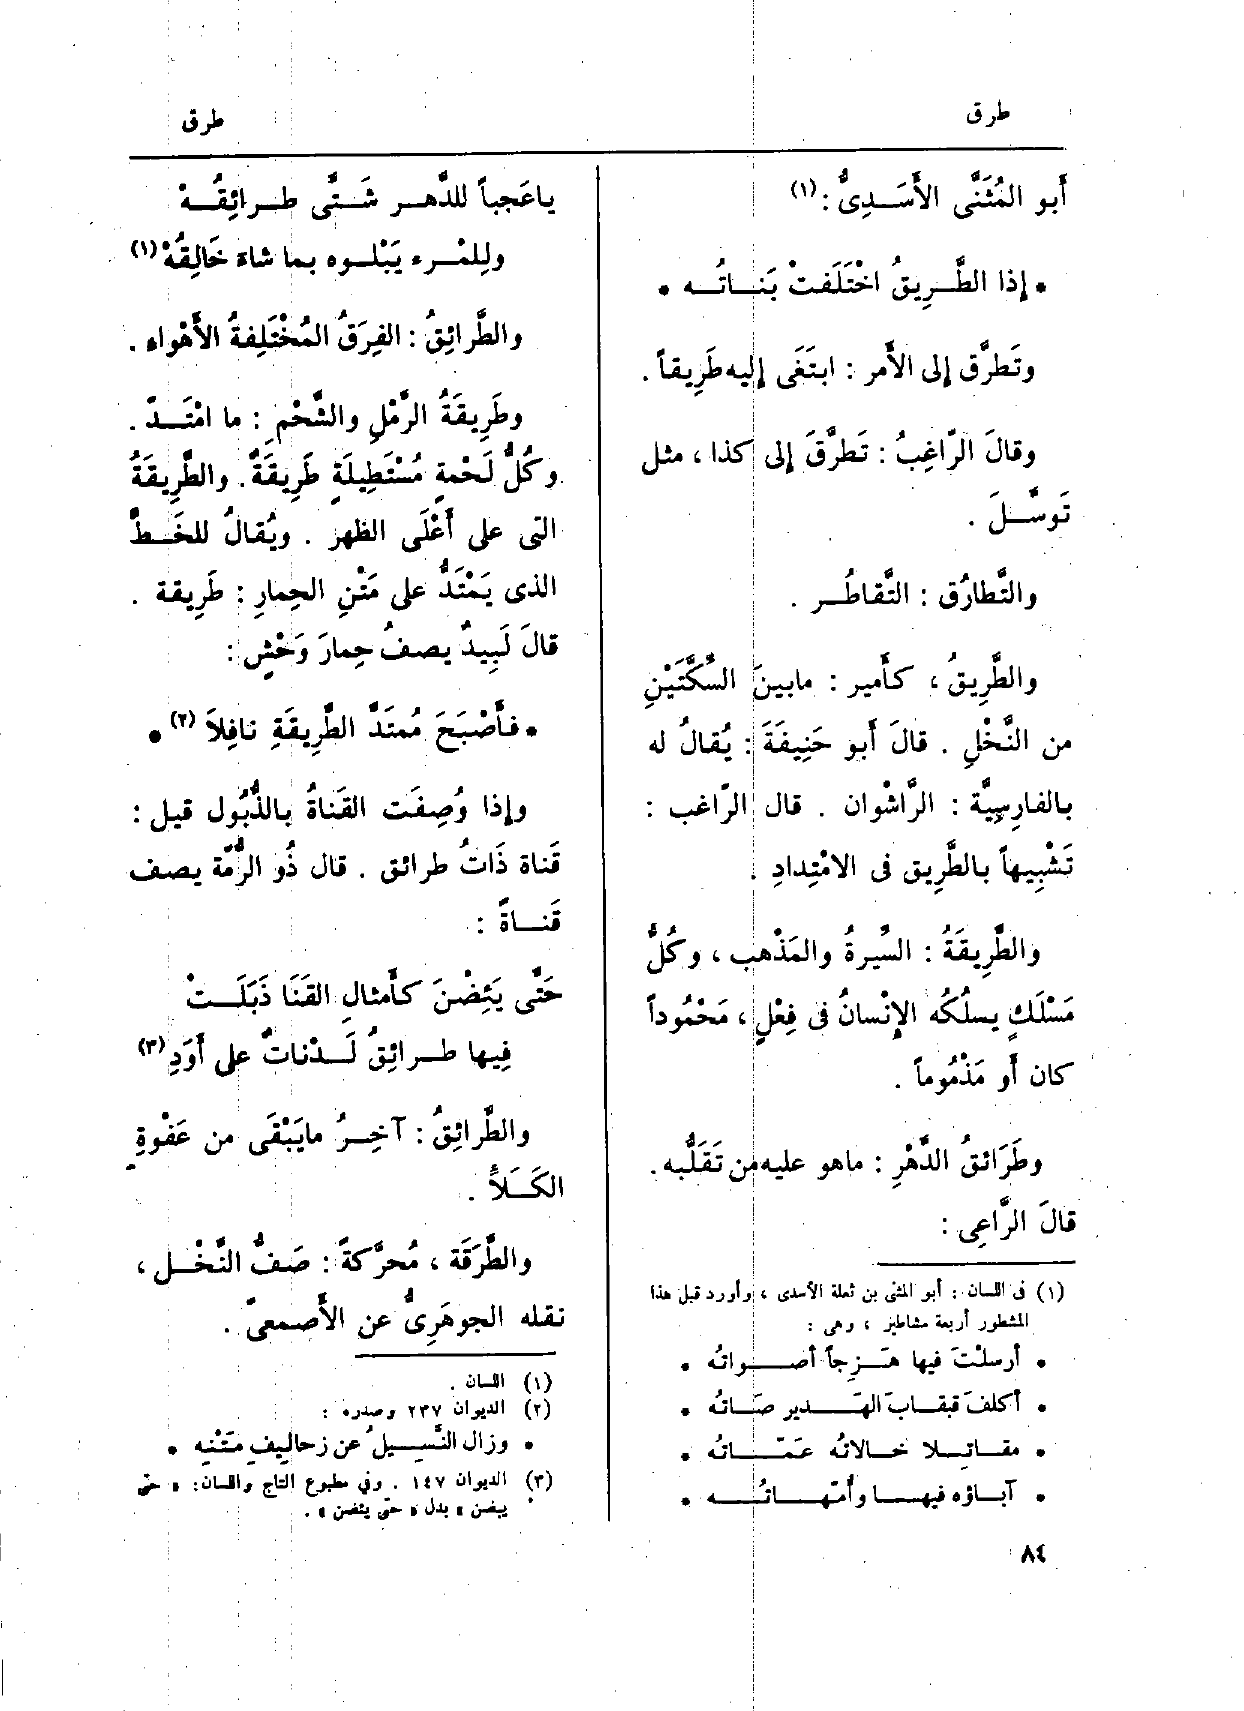 طرق
طرق
أَبو المُثَنَّى الأَسَدِىُّ :(١)
• إِذا الطَّرِيقُ اخْتَلَفتْ بَنَاتُه •
وتَطرَّق إِلى الأَمر : ابتَغَى إِليه طَرِيقاً .
وقالَ الرّاغِبُ : تَطرَّقَ إِلى كذا ، مثل
تَوسَّلَ .
والتَّطارُق : التَّقاطُر .
والطَّرِيقُ ، كأَمير : مابينَ السِّكَّتَيْنِ
من النَّخْلِ . قالَ أَبو حَنِيفَةَ : يُقالُ له
بالفارِسِيَّة : الرَّاشْوان . قال الرّاغب :
تَشْبِيهاً بالطَّرِيق فى الامْتِدادِ .
والطَّرِيقَةُ : السِّيرةُ والمَذْهب ، وكُلُّ
مَسْلَكٍ يسلُكُه الإِنْسانُ فى فِعْلٍ ، مَحْمُوداً
كان أَو مَذْمُوماً .
وطَرَائقُ الدَّهْرِ : ماهو عليه من تَقَلُّبه .
قالَ الرَّاعِى :
(١) فى اللسان : أبو المثنى بن ثعلة الأسدى ، وأورد قبل هذا
المشطور أربعة مشاطير ، وهى :
• أرسلْتَ فيها هَزِجاً أصواتُه •
• أكلفَ قبقابَ الهَدير صَاتُه •
• مقاتلا خالاتُه عَمَّاتُه •
• آباؤه فيها وأمّهاتُه •
٨٤
ياعَجباً للدَّهر شَتَّى طرائِقُهْ
ولِلمْرء يَبْلوه بما شاءَ خَالِقُهْ(١)
والطَّرائِقُ : الفِرَقُ المُخْتَلِفةُ الأَهْواء .
وطَرِيقَةُ الرَّمْلِ والشَّحْمِ : ما امْتَدَّ .
وكُلُّ لَحْمةٍ مُسْتَطِيلَةٍ طَرِيقَةٌ . والطَّرِيقَةُ
التى على أَعْلَى الظهر . ويُقالُ للخَطِّ
الذى يَمْتَدُّ على مَتْنِ الحِمارِ : طَرِيقة .
قالَ لَبِيدٌ يصفُ حِمارَ وَحْشٍ :
• فأَصْبَحَ مُمتَدَّ الطَّرِيقَةِ نافِلاَ (٢) •
وإِذا وُصِفَت القَناةُ بالذُّبُول قيل :
قَناة ذَاتُ طرائق . قال ذُو الرُّمّة يصف
قَناةً :
حَتَّى يَئِضْنَ كأَمثالِ القَنَا ذَبَلَتْ
فِيها طرائِقُ لَدْناتٌ على أَوَدِ(٣)
والطَّرائِقُ : آخِرُ مايَبْقَى من عَفْوةِ
الكَلأَ .
والطَّرَقَة ، مُحرَّكةً : صَفُّ النَّخْل ،
نقله الجوهَرِىُّ عن الأَصمعىّ .
(١) اللسان .
(٢) الديوان ٢٣٧ وصدره :
• وزال النَّسِيلُ عن زحاليفِ مَتْنِه •
(٣) الديوان ١٤٧ . وفي مطبوع التاج واللسان: « حتى
يبضن » بدل « حتى يئضن » .